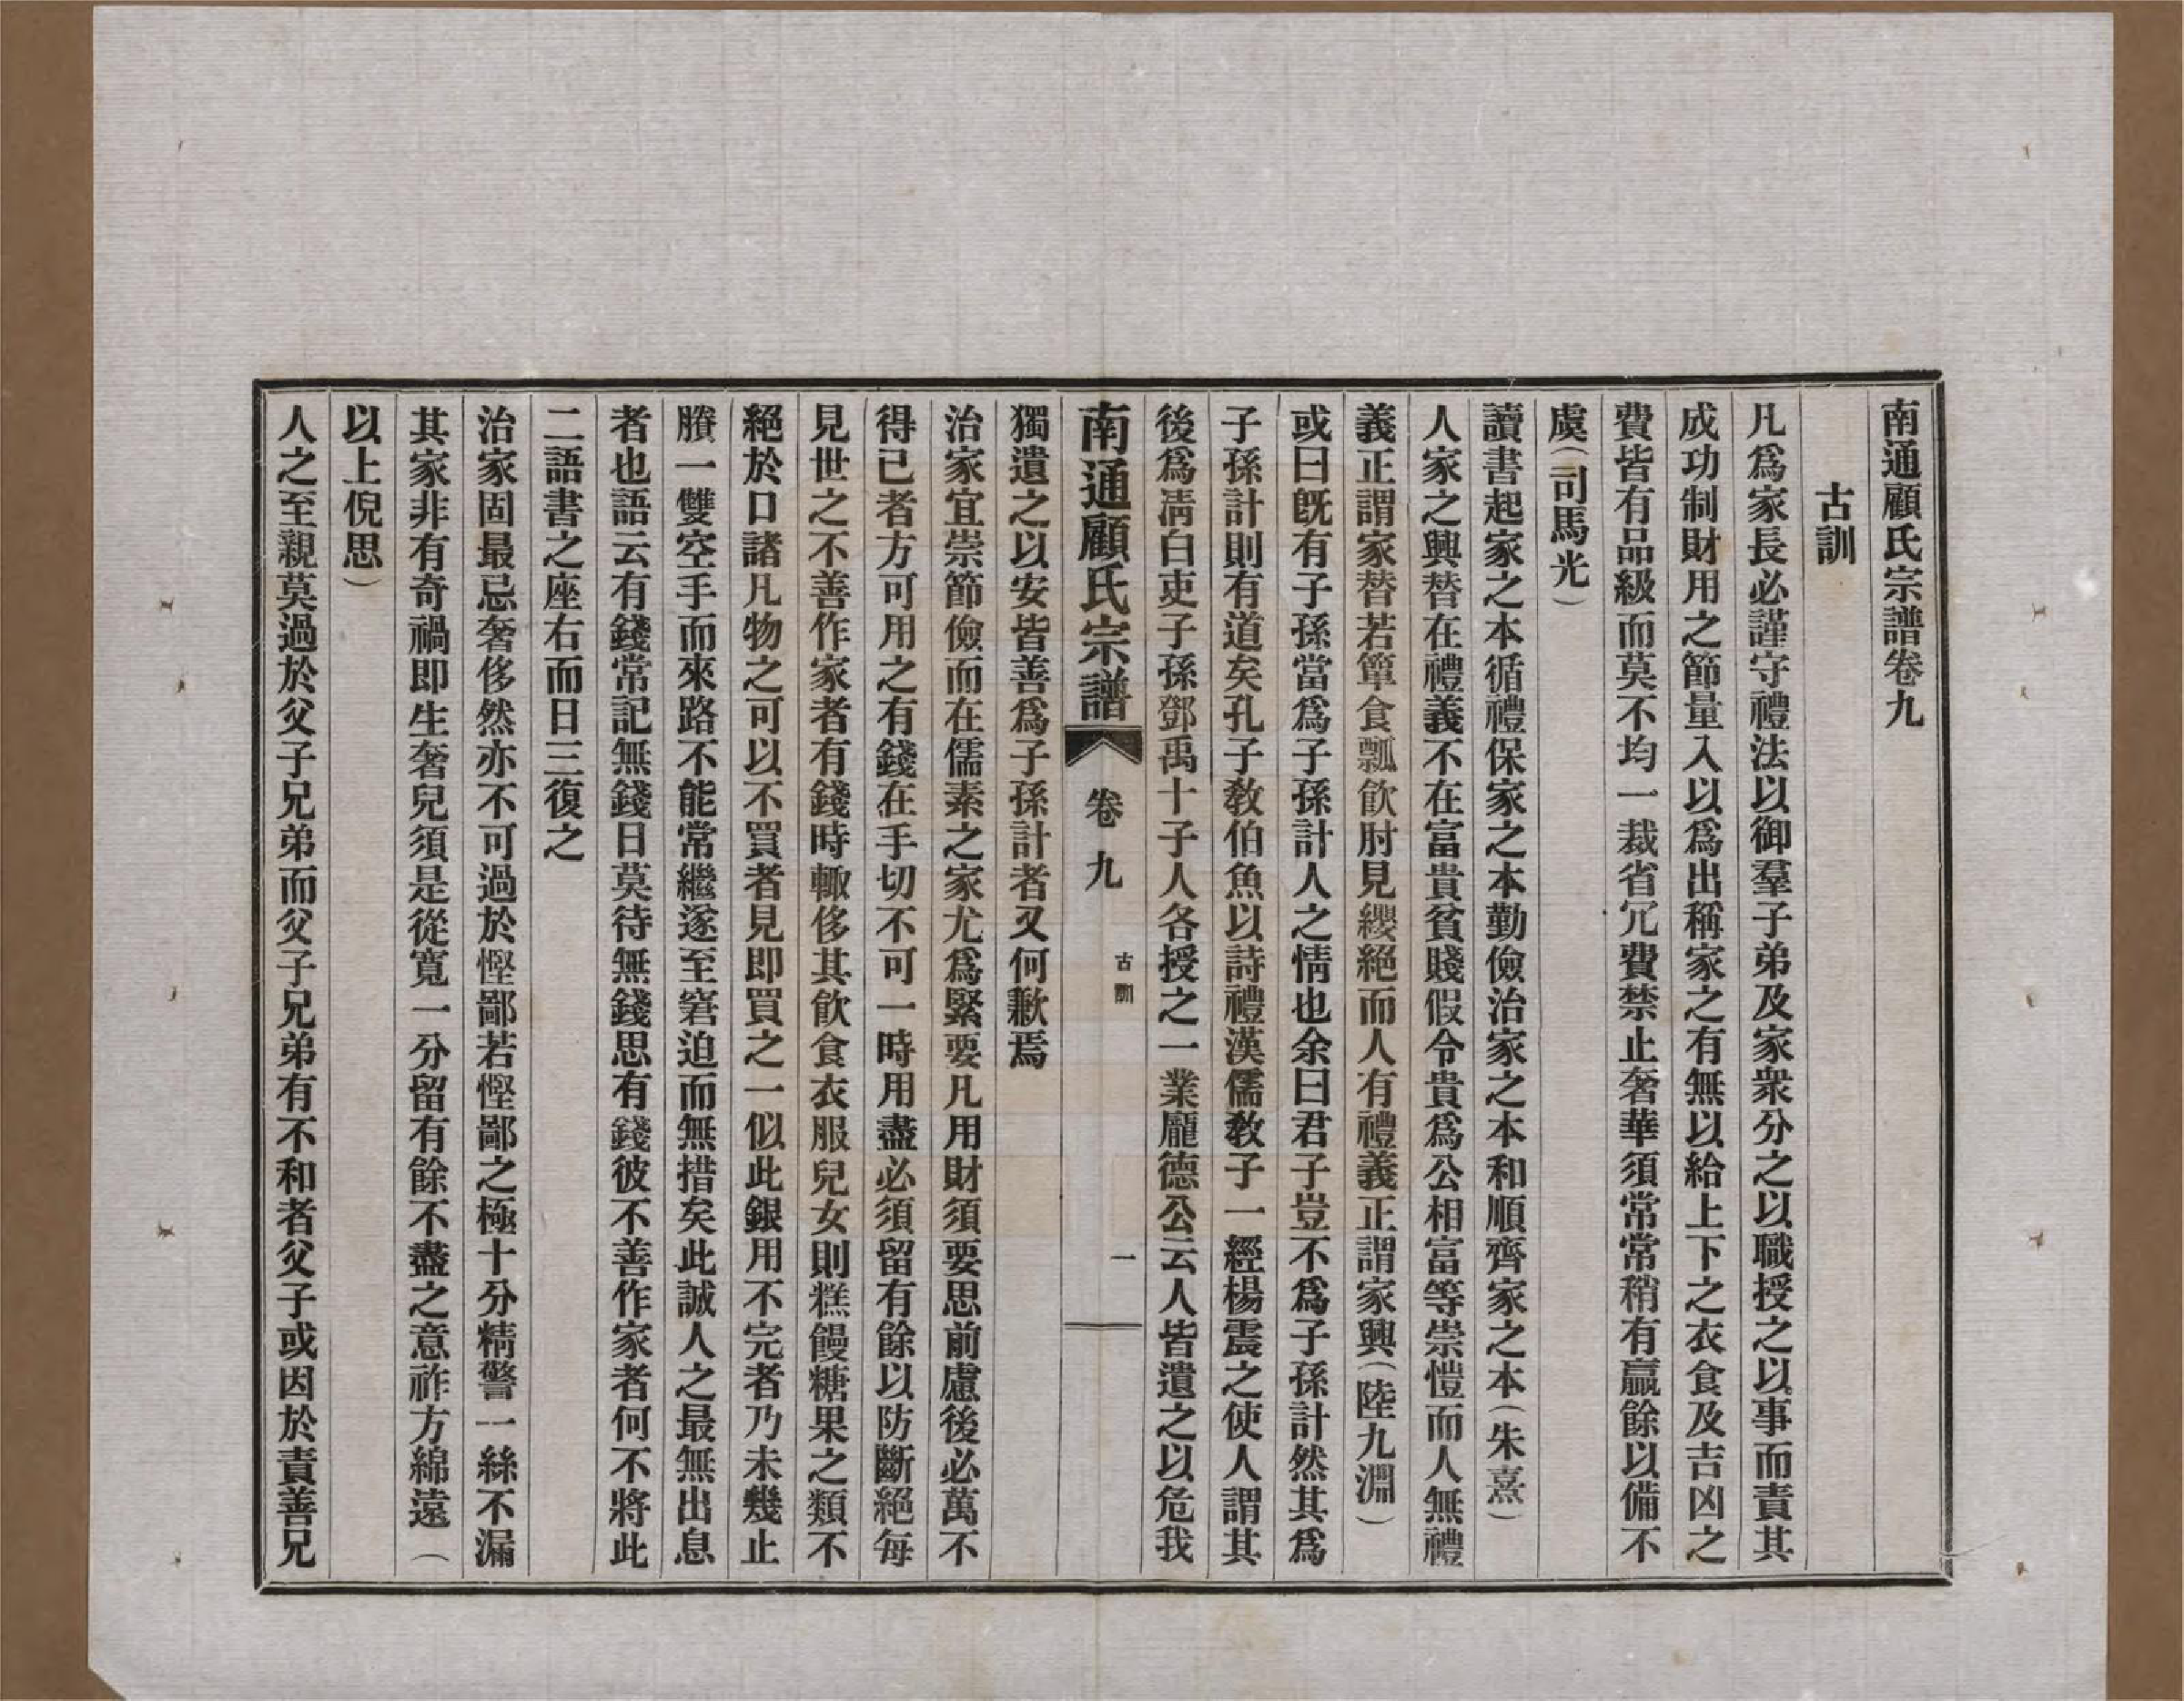 南通顧氏宗譜卷九
古訓
凡爲家長必謹守禮法以御羣子弟及家衆分之以職授之以事而責其
成功制財用之節量入以爲出稱家之有無以給上下之衣食及吉凶之
費皆有品級而莫不均一裁省冗費禁止奢華須常常稍有贏餘以備不
虞（司馬光）
讀書起家之本循禮保家之本勤儉治家之本和順齊家之本（朱熹）
人家之興替在禮義不在富貴貧賤假令貴爲公相富等崇愷而人無禮
義正謂家替若簞食瓢飲肘見纓絕而人有禮義正謂家興（陸九淵）
或曰旣有子孫當爲子孫計人之情也余曰君子豈不爲子孫計然其爲
子孫計則有道矣孔子教伯魚以詩禮漢儒教子一經楊震之使人謂其
後爲清白吏子孫鄧禹十子人各授之一業龐德公云人皆遺之以危我
南通顧氏宗譜 卷九 古訓 一
獨遺之以安皆善爲子孫計者又何歉焉
治家宜崇節儉而在儒素之家尤爲緊要凡用財須要思前慮後必萬不
得已者方可用之有錢在手切不可一時用盡必須留有餘以防斷絕每
見世之不善作家者有錢時輙侈其飲食衣服兒女則糕饅糖果之類不
絕於口諸凡物之可以不買者見即買之一似此銀用不完者乃未幾止
賸一雙空手而來路不能常繼遂至窘迫而無措矣此誠人之最無出息
者也語云有錢常記無錢日莫待無錢思有錢彼不善作家者何不將此
二語書之座右而日三復之
治家固最忌奢侈然亦不可過於慳鄙若慳鄙之極十分精警一絲不漏
其家非有奇禍即生奢兒須是從寬一分留有餘不盡之意祚方綿遠（
以上倪思）
人之至親莫過於父子兄弟而父子兄弟有不和者父子或因於責善兄